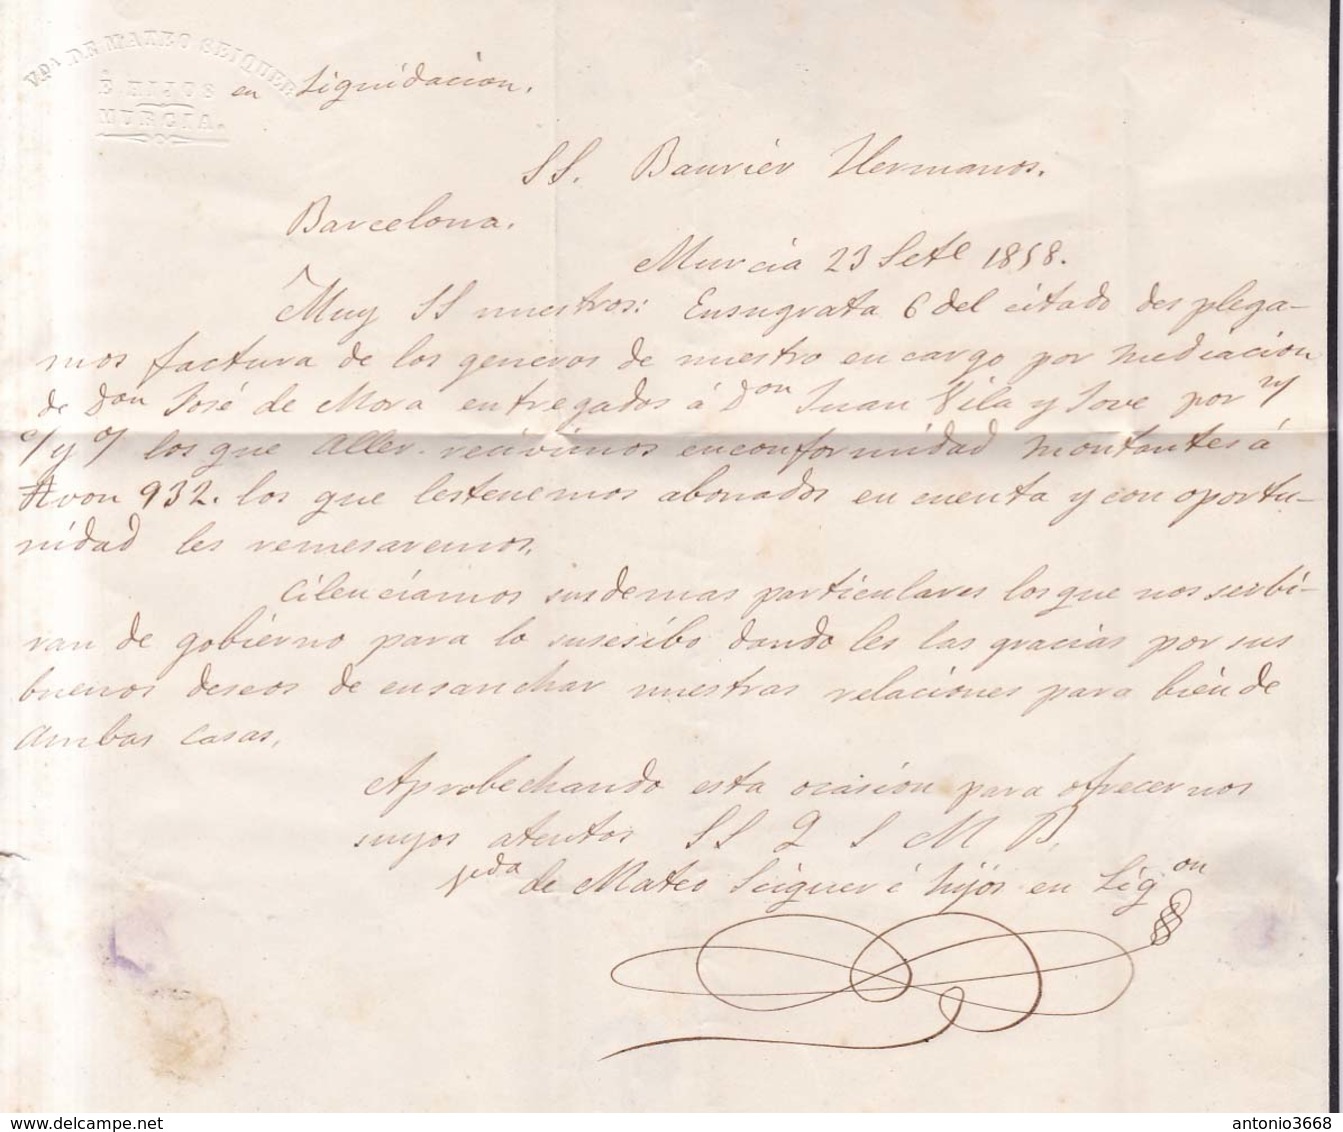 Vda DE MATEO SEIQUER
É HIJOS
MURCIA.
en Liquidacion.
SS. Baurier Hermanos.
Barcelona.
Murcia 23 Sete 1858.
Muy SS nuestros: Ensugrata 6 del citado des plega-
mos factura de los generos de nuestro encargo por mediacion
de Don José de Mora entregados á Don Juan Vila y Jove por
los que aller recivimos enconformidad montantes á
Rvon 932. los que lestenemos abonados en cuenta y con oportu-
nidad les remesaremos.
Cilenciamos susdemas particulares losque nos serbi-
ran de gobierno para lo susesibo dando les las gracias por sus
buenos deseos de ensanchar nuestras relaciones para bien de
ambas casas.
Aprobechando esta ocasion para ofrecernos
suyos atentos SS Q S M B.
Vda de Mateo Seiquer é hijos en Liqon
www.delcampe.net
antonio3668